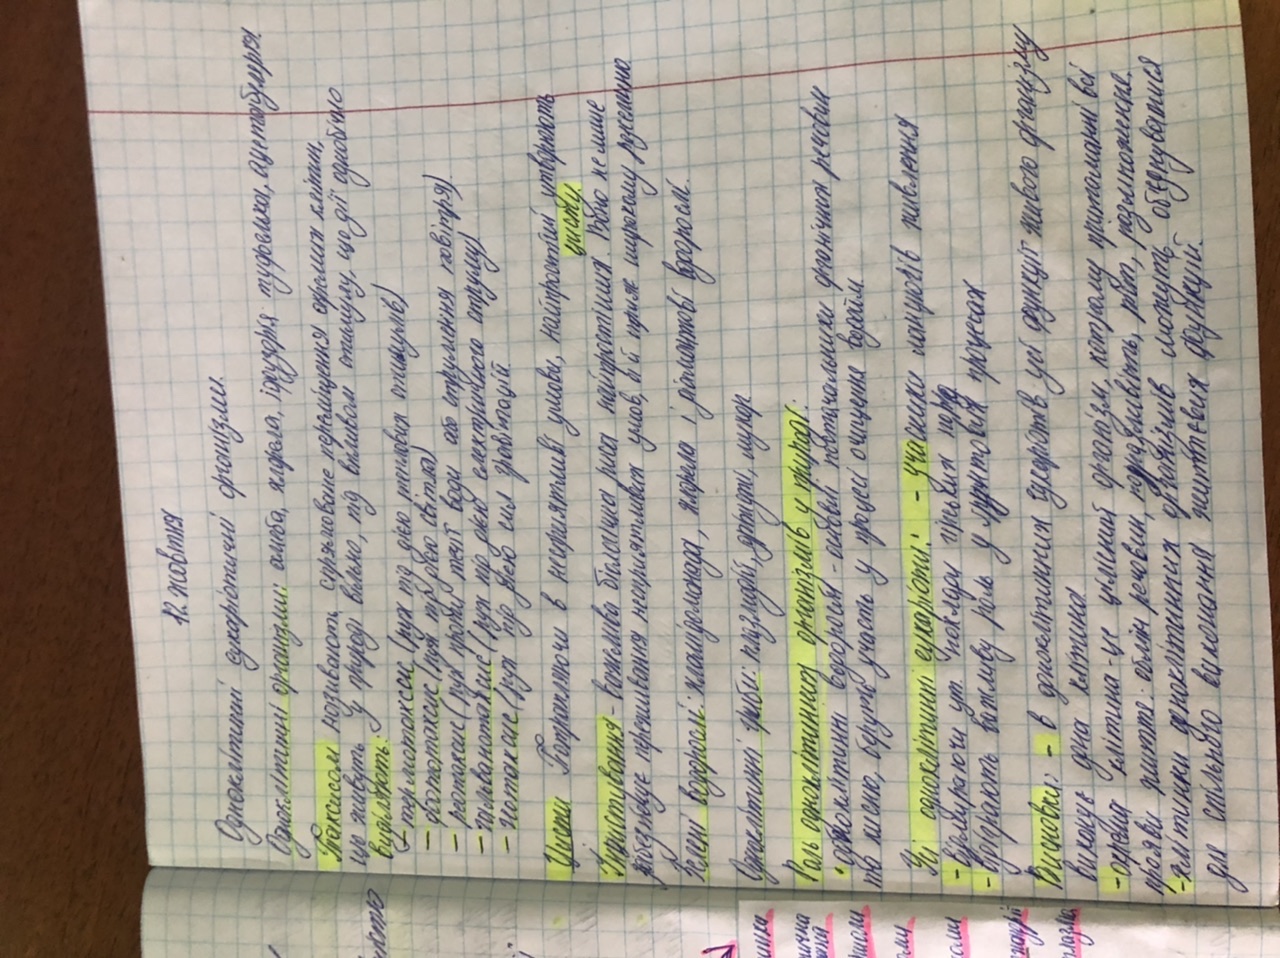 12 жовтня
Одноклітинні еукаріотичні організми.
Одноклітинні організми: амеба, хлорела, інфузорія туфелька, ацетабулярія
Таксисом називають спрямоване переміщення окремих клітин,
що живуть у природі вільно, під впливом стимулу, що діє однобічно
Виділяють:
- термотаксис (рух під дією теплових стимулів)
- фототаксис (рух під дією світла)
- реотаксис (рух проти течії води або струменя повітря)
- гальванотаксис (рух під дією електричного струму)
- геотаксис (рух під дією сил гравітації
Цисти Потрапляючи в несприятливі умови, найпростіші утворюють
цисту.
Інцистування - важлива біологічна риса найпростіших. Воно не лише
забезпечує переживання несприятливих умов, а й сприяє широкому розселенню
Зелені водорості: хламідомонада, хлорела і різноманітні водорослі.
Одноклітинні гриби: пліснява, дріжджі, мукор
Роль одноклітинних організмів у природі:
одноклітинні водорості - основні постачальники органічних речовин
та кисню, беруть участь у процесі очищення водойм
Усі одноклітинні еукаріоти: - учасники ланцюгів живлення
- формуючи ут. поклади гірських порід
- відіграють важливу роль у ґрунтових процесах
Висновки: - в одноклітинних еукаріотів усі функції живого організму
виконує одна клітина.
- окрема клітина - це цілісний організм, котрому притаманні всі
прояви життя: обмін речовин, подразливість, рух, розмноження.
- клітини одноклітинних організмів можуть об'єднуватися
для спільного виконання життєвих функцій